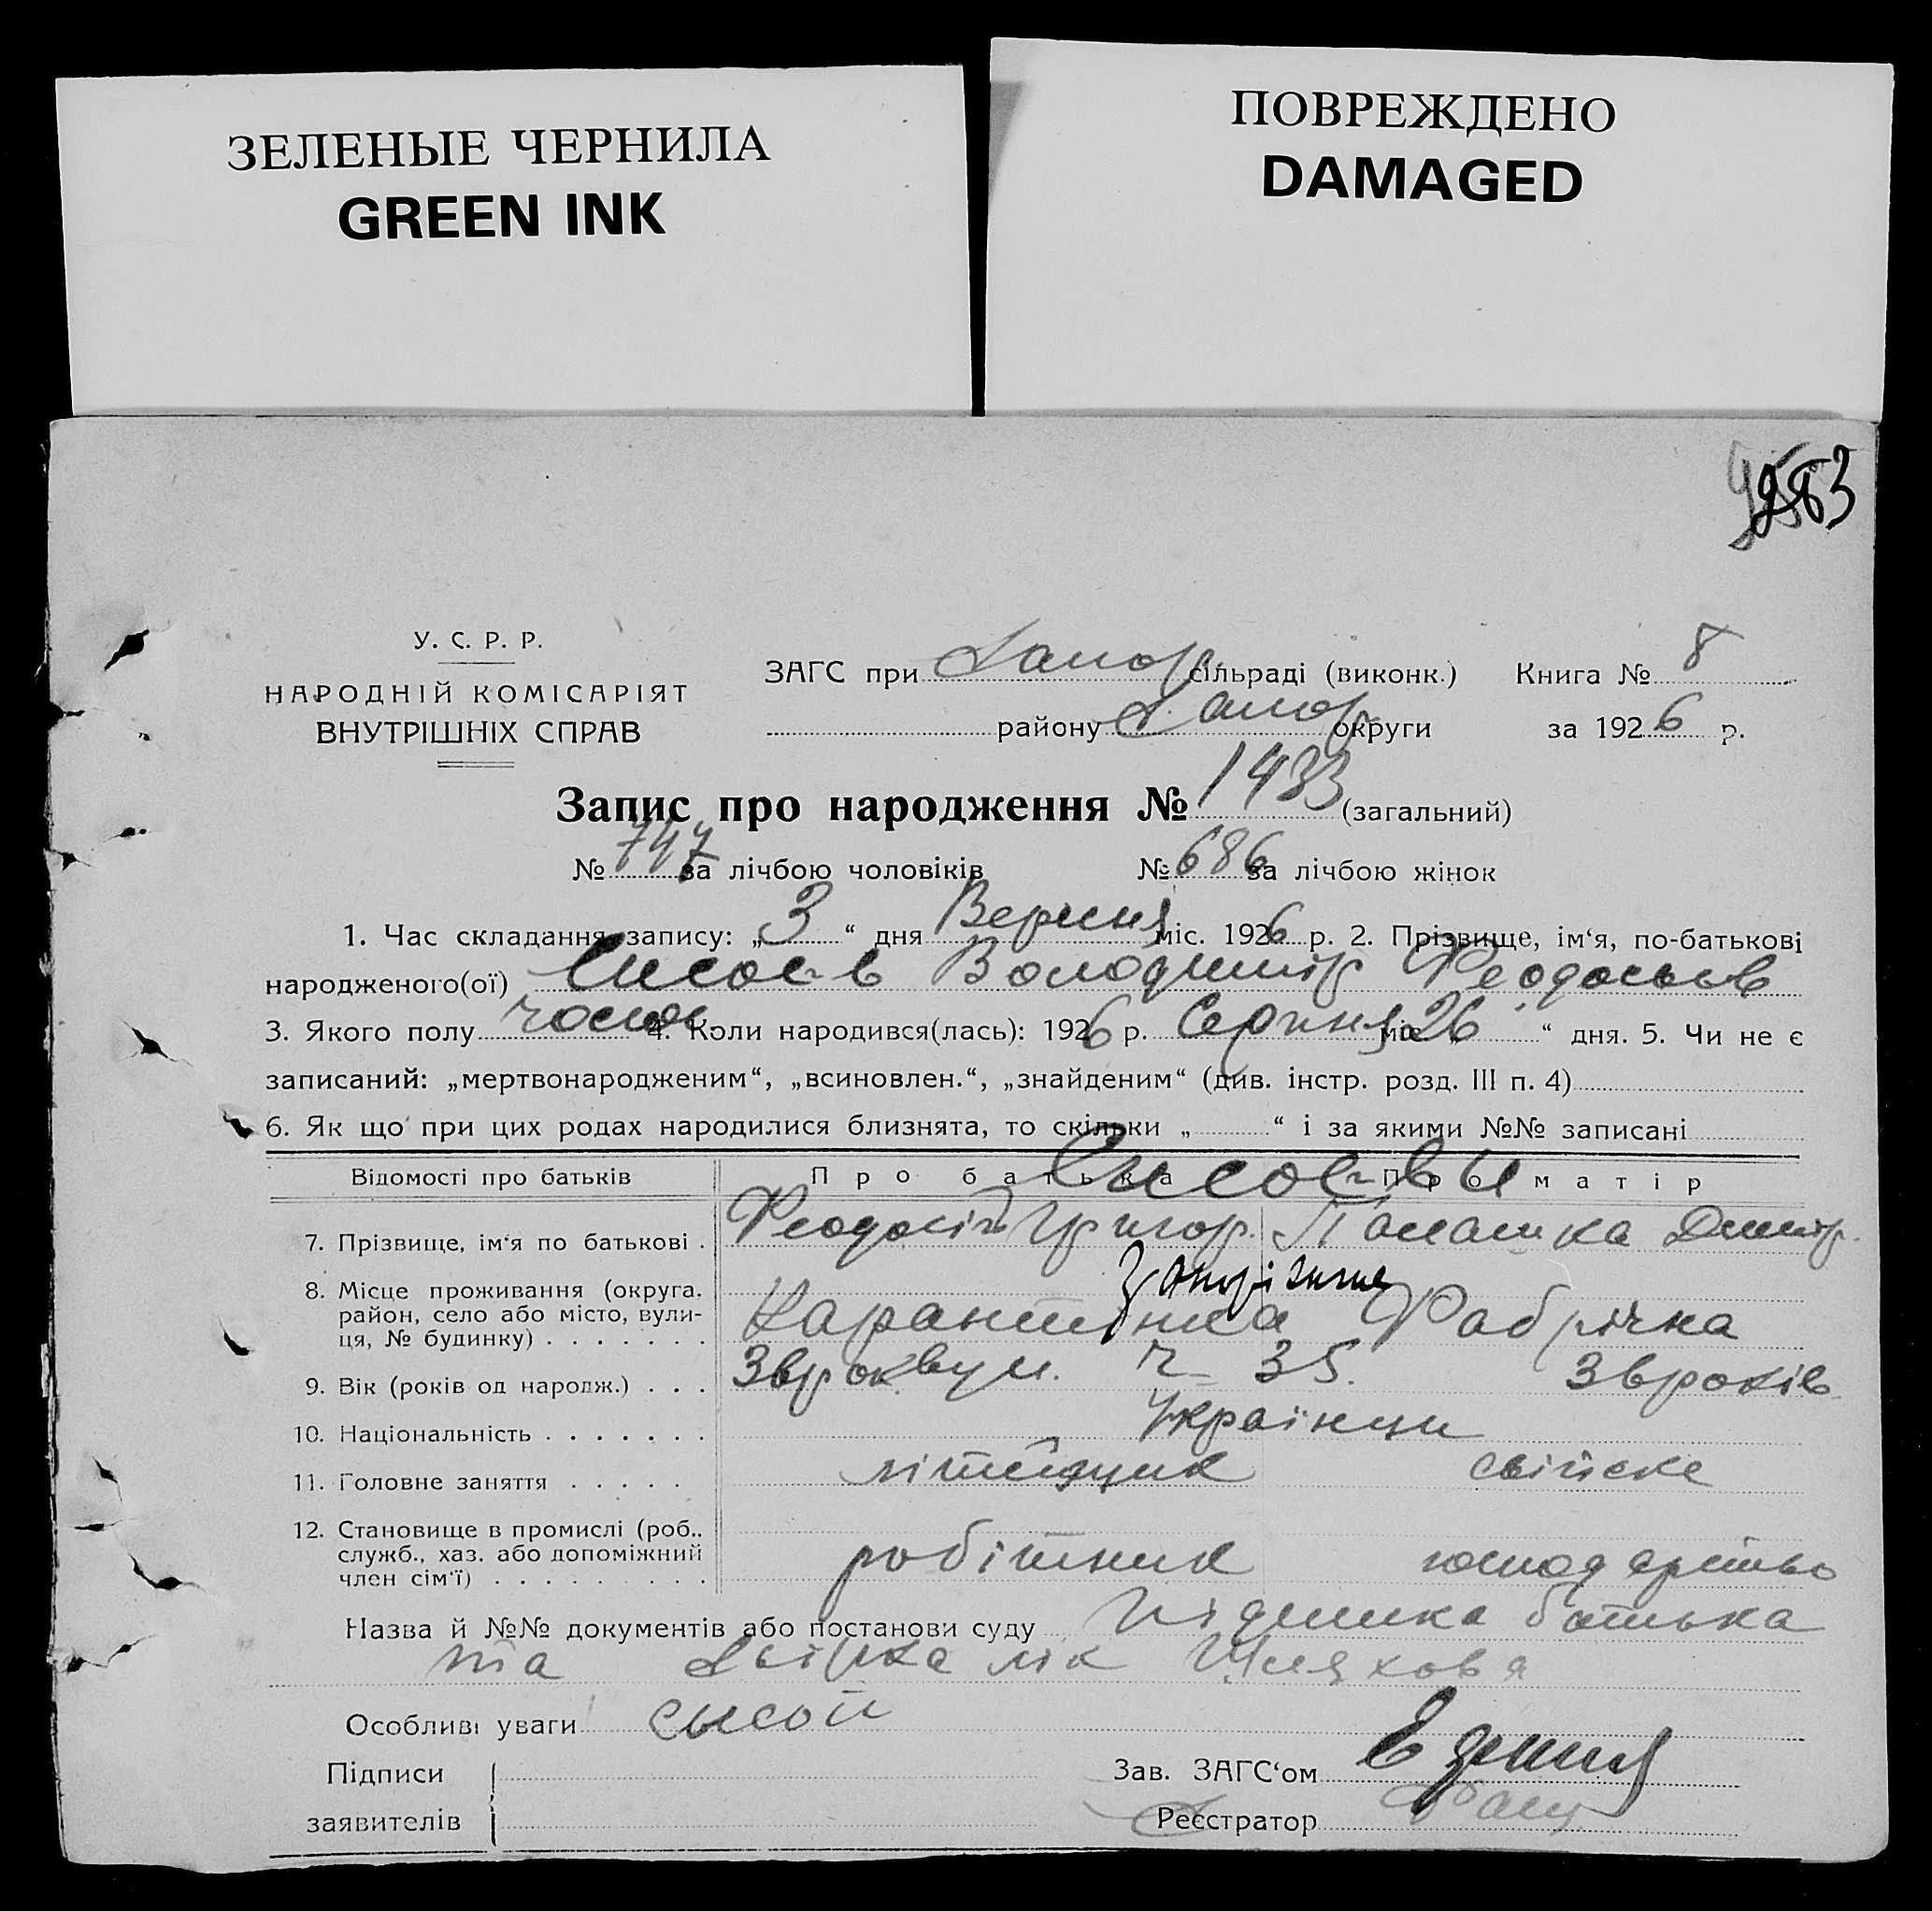 ЗЕЛЕНЫЕ ЧЕРНИЛА
GREEN INK
ПОВРЕЖДЕНО
DAMAGED
283
У. С. Р. Р.
НАРОДНІЙ КОМІСАРІЯТ
ВНУТРІШНІХ СПРАВ
ЗАГС при Запор. сільраді (виконк.) Книга № 8
району Запор. округи за 1926 р.
Запис про народження № 1433 (загальний)
№ 747 за лічбою чоловіків № 686 за лічбою жінок
1. Час складання запису: „3“ дня Вересня міс. 1926 р. 2. Прізвище, ім‘я, по-батькові
народженого(ої) Сисоєв Володимир Феодосьев
3. Якого полу чолов. 4. Коли народився(лась): 1926 р. Серпня міс. „26“ дня. 5. Чи не є
записаний: „мертвонародженим“, „всиновлен.“, „знайденим“ (див. інстр. розд. III п. 4)
6. Як що при цих родах народилися близнята, то скільки „ “ і за якими №№ записані
Відомості про батьків Про батька Про матір
Сисоєвы
7. Прізвище, ім‘я по батькові . Феодосій Григор. Параська Дмитр.
8. Місце проживання (округа. район, село або місто, вулиця, № будинку) . . . . . . . Запоріжжя
Карантинка Фабрічна
вул. ч 35.
9. Вік (років од народж.) . . . 38 рок. 38 років
10. Національність . . . . . . . Українци
11. Головне заняття . . . . . літейщик свійске
12. Становище в промислі (роб.. служб., хаз. або допоміжний член сім‘ї) . . . . . . . . . робітник господарство
Назва й №№ документів або постанови суду батька
та лік
Особливі уваги
Підписи
заявителів
Зав. ЗАГС‘ом
Реєстратор